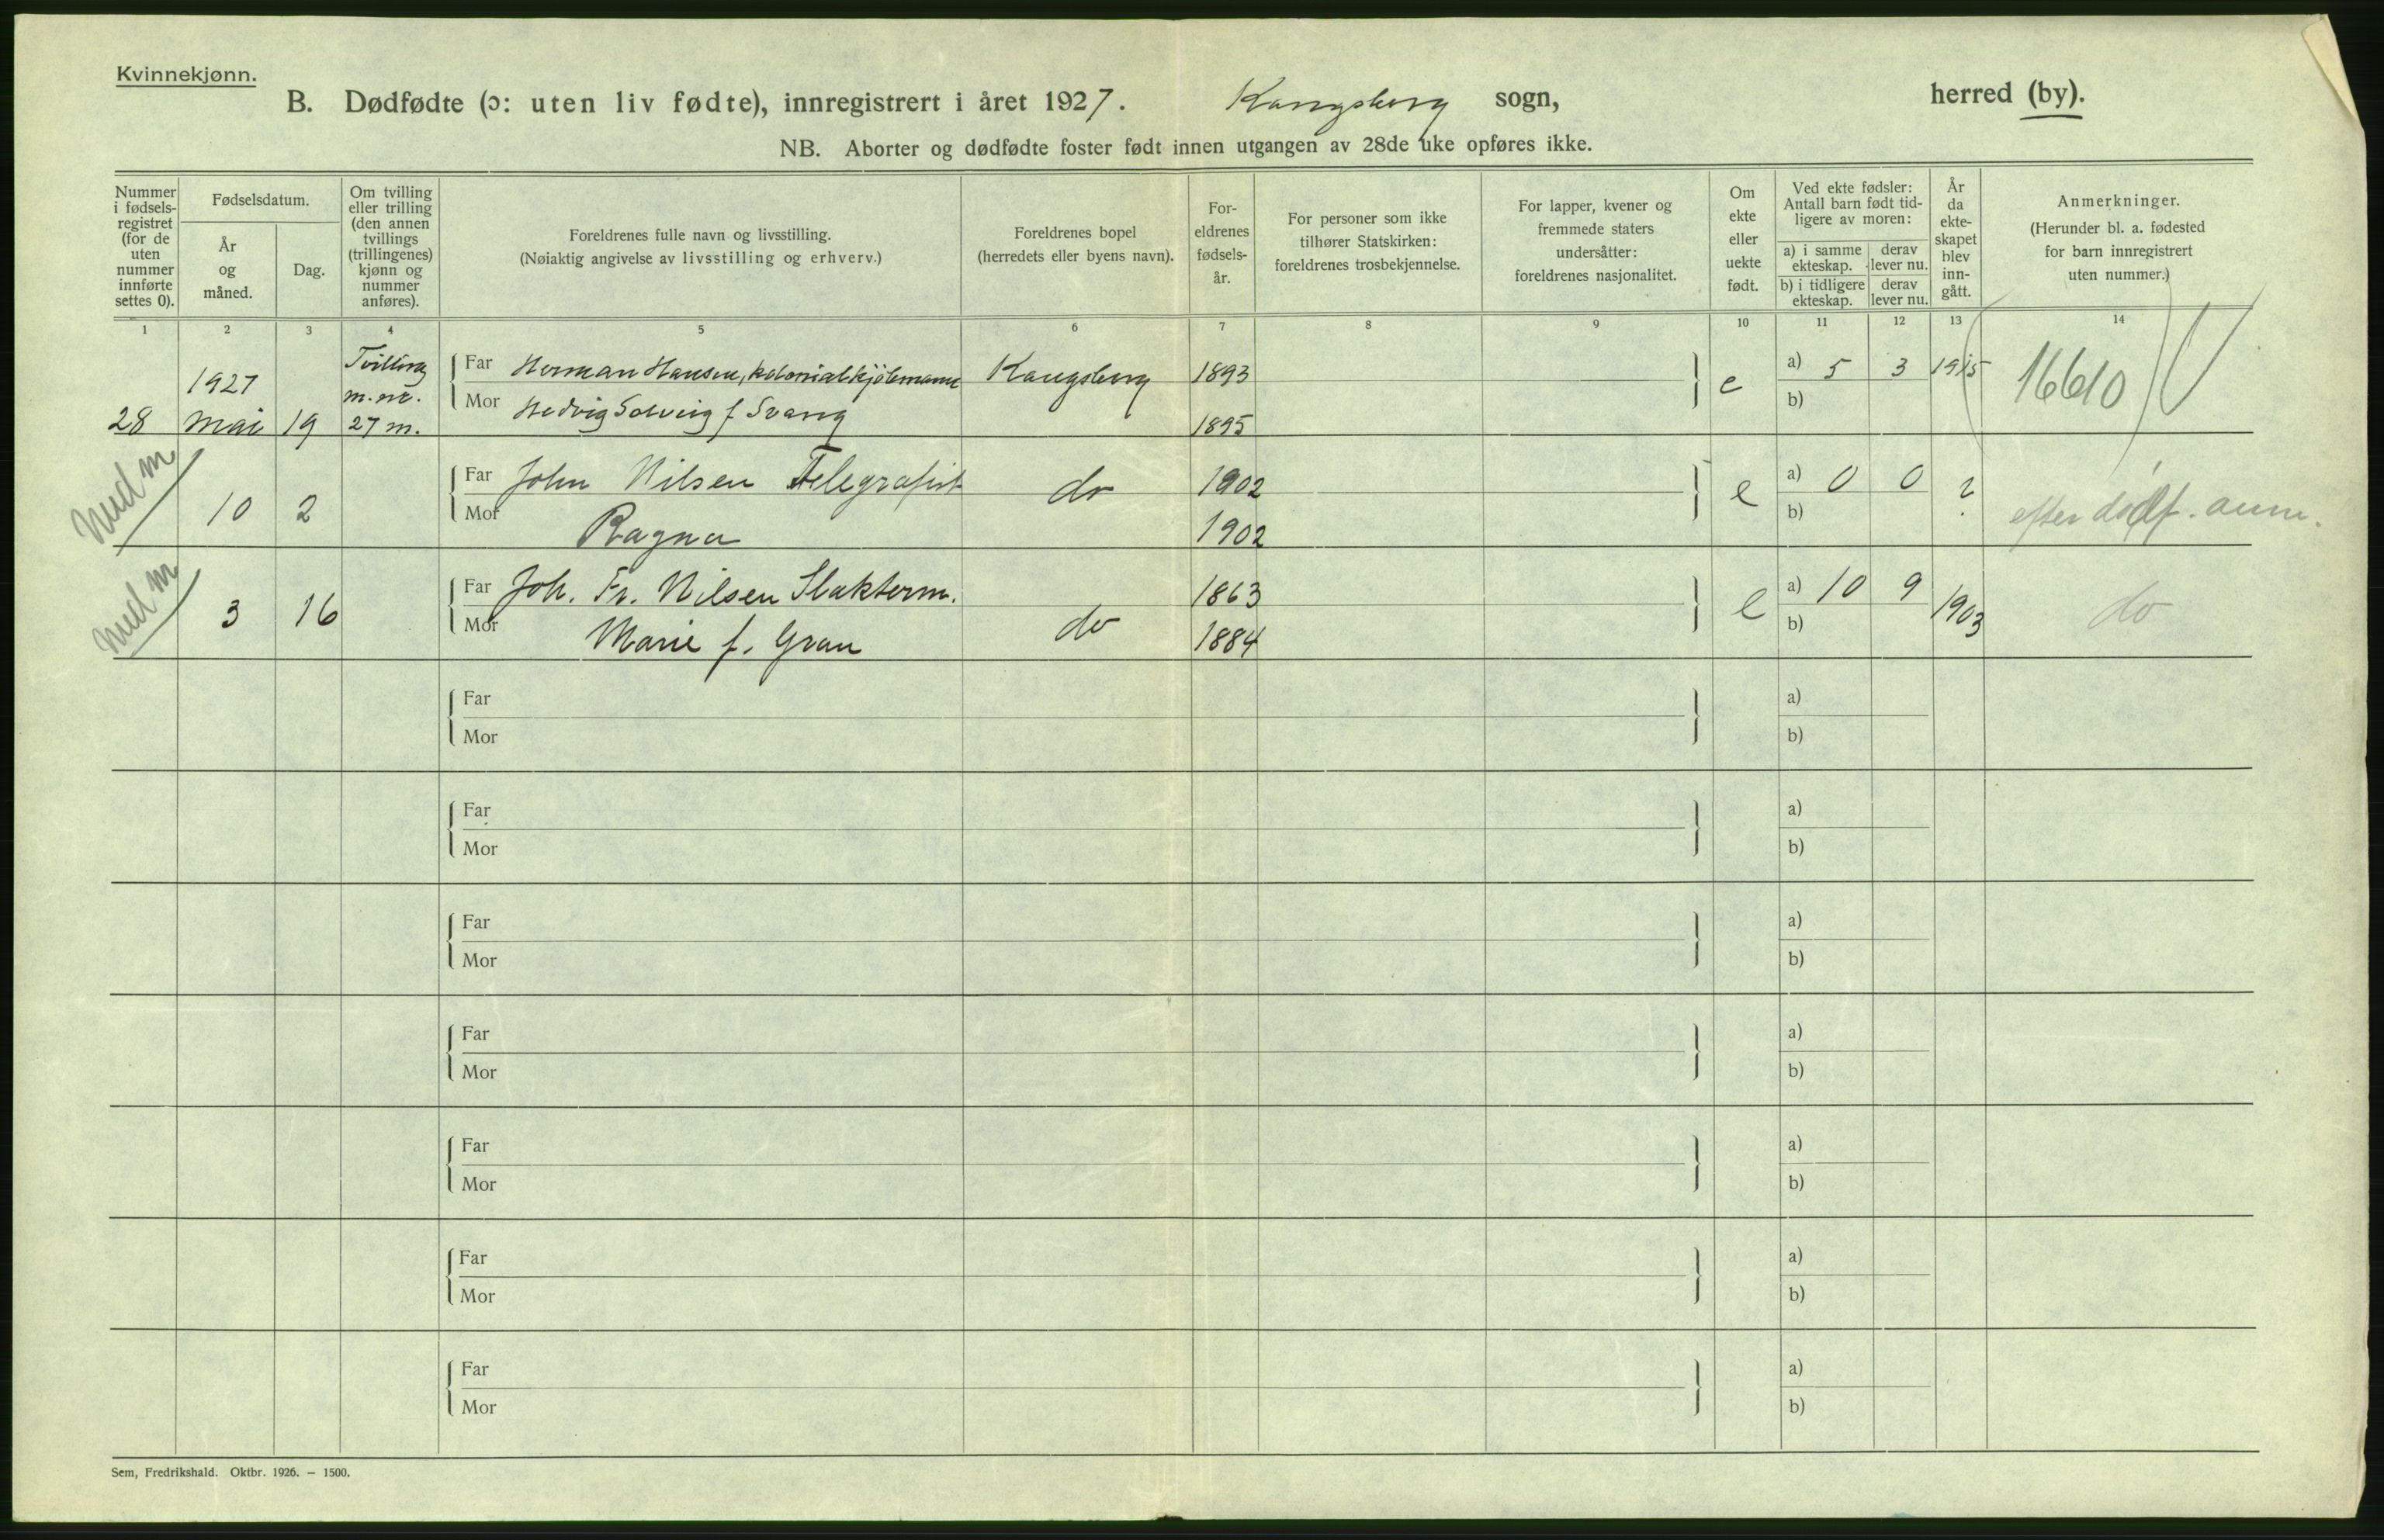 Kvinnekjønn.
B. Dødfødte (ɔ: uten liv fødte), innregistrert i året 1927. Kongsberg sogn, herred (by).
NB. Aborter og dødfødte foster født innen utgangen av 28de uke opføres ikke.
Nummer i fødsels-registret (for de uten nummer innførte settes 0).
Fødselsdatum.
År og måned.
Dag.
Om tvilling eller trilling (den annen tvillings (trillingenes) kjønn og nummer anføres).
Foreldrenes fulle navn og livsstilling.
(Nøiaktig angivelse av livsstilling og erhverv.)
Foreldrenes bopel
(herredets eller byens navn).
For-eldrenes fødsels-år.
For personer som ikke tilhører Statskirken: foreldrenes trosbekjennelse.
For lapper, kvener og fremmede staters undersåtter: foreldrenes nasjonalitet.
Om ekte eller uekte født.
Ved ekte fødsler: Antall barn født tid-ligere av moren:
a) i samme ekteskap. derav lever nu.
b) i tidligere ekteskap. derav lever nu.
År da ekte-skapet blev inn-gått.
Anmerkninger.
(Herunder bl. a. fødested for barn innregistrert uten nummer.)
1 2 3 4 5 6 7 8 9 10 11 12 13 14
28 1927 Mai 19 Tvilling m. nr. 27 m.
Far Herman Hansen, kolonialkjøbmann Kongsberg 1893 e a) 5 3 1915 16610
Mor Hedvig Solveig f Svang 1895 b)
10 2
Far John Nilsen Telegrafist do 1902 e a) 0 0 ? efter dødf. anm.
Mor Ragna 1902 b)
3 16
Far Joh. Fr. Nilsen Slakterm. do 1863 e a) 10 9 1903 do
Mor Marie f. Gran 1884 b)
Far a)
Mor b)
Far a)
Mor b)
Far a)
Mor b)
Far a)
Mor b)
Far a)
Mor b)
Far a)
Mor b)
Far a)
Mor b)
Sem, Fredrikshald. Oktbr. 1926. — 1500.